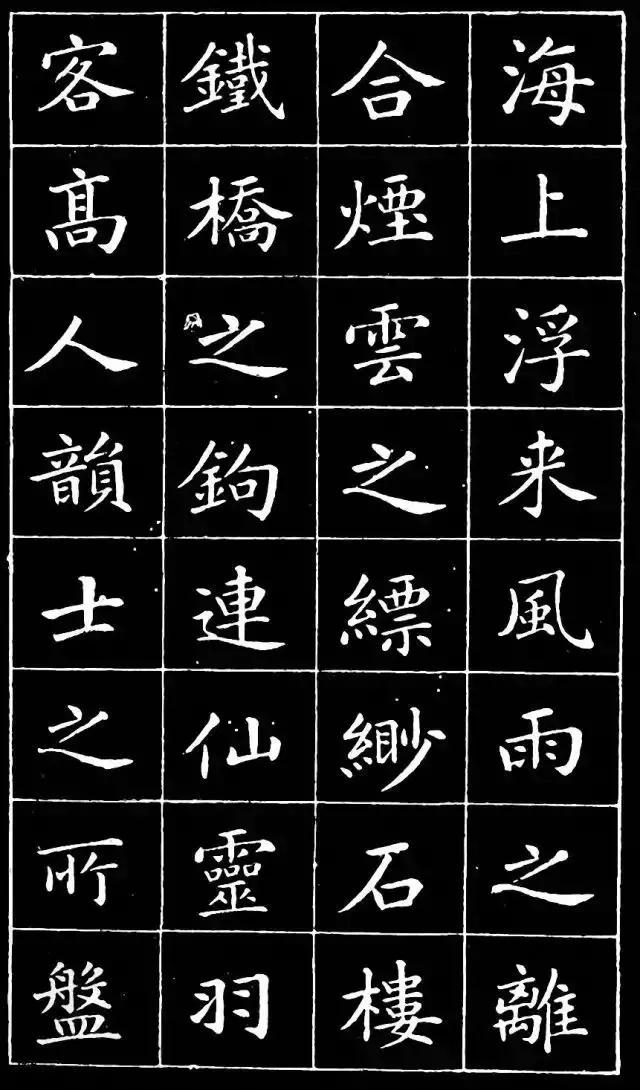 海上浮来風雨之離
合煙雲之縹緲石樓
鐵橋之鉤連仙靈羽
客髙人韻士之所盤